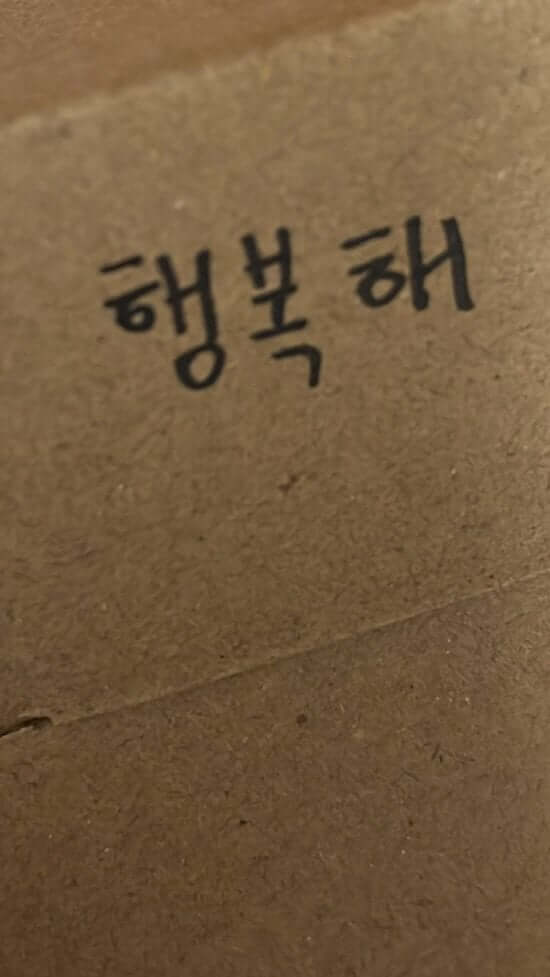 행복해